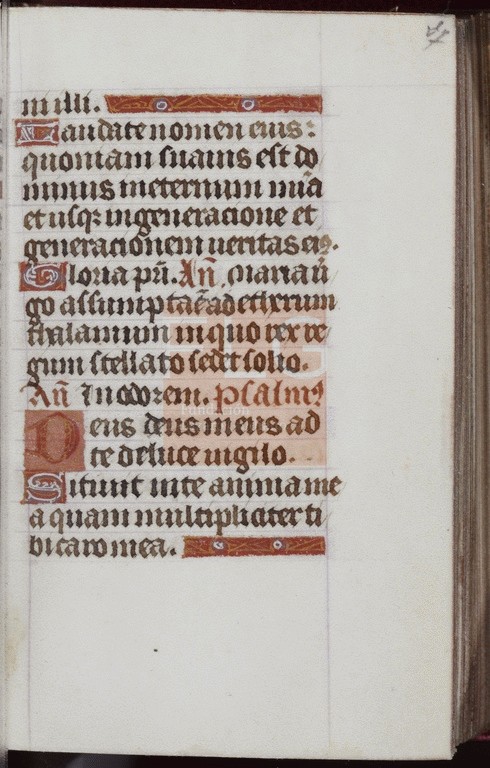 in illi.
Laudate nomen eius:
quoniam suauis est do
minus ineternum mīa
et usqꝫ in generacione et
generacionem ueritas eiꝰ.
Gloria pr̄i. Añ. Maria uir̄
go assumpta ē ad ethereum
thalamum in quo rex re
gum stellato sedet solio.
Añ In odorem. psalmꝰ
Deus deus meus ad
te de luce uigilo.
Sitiuit in te anima me
a quam multipliciter ti
bi caro mea.
Fundación